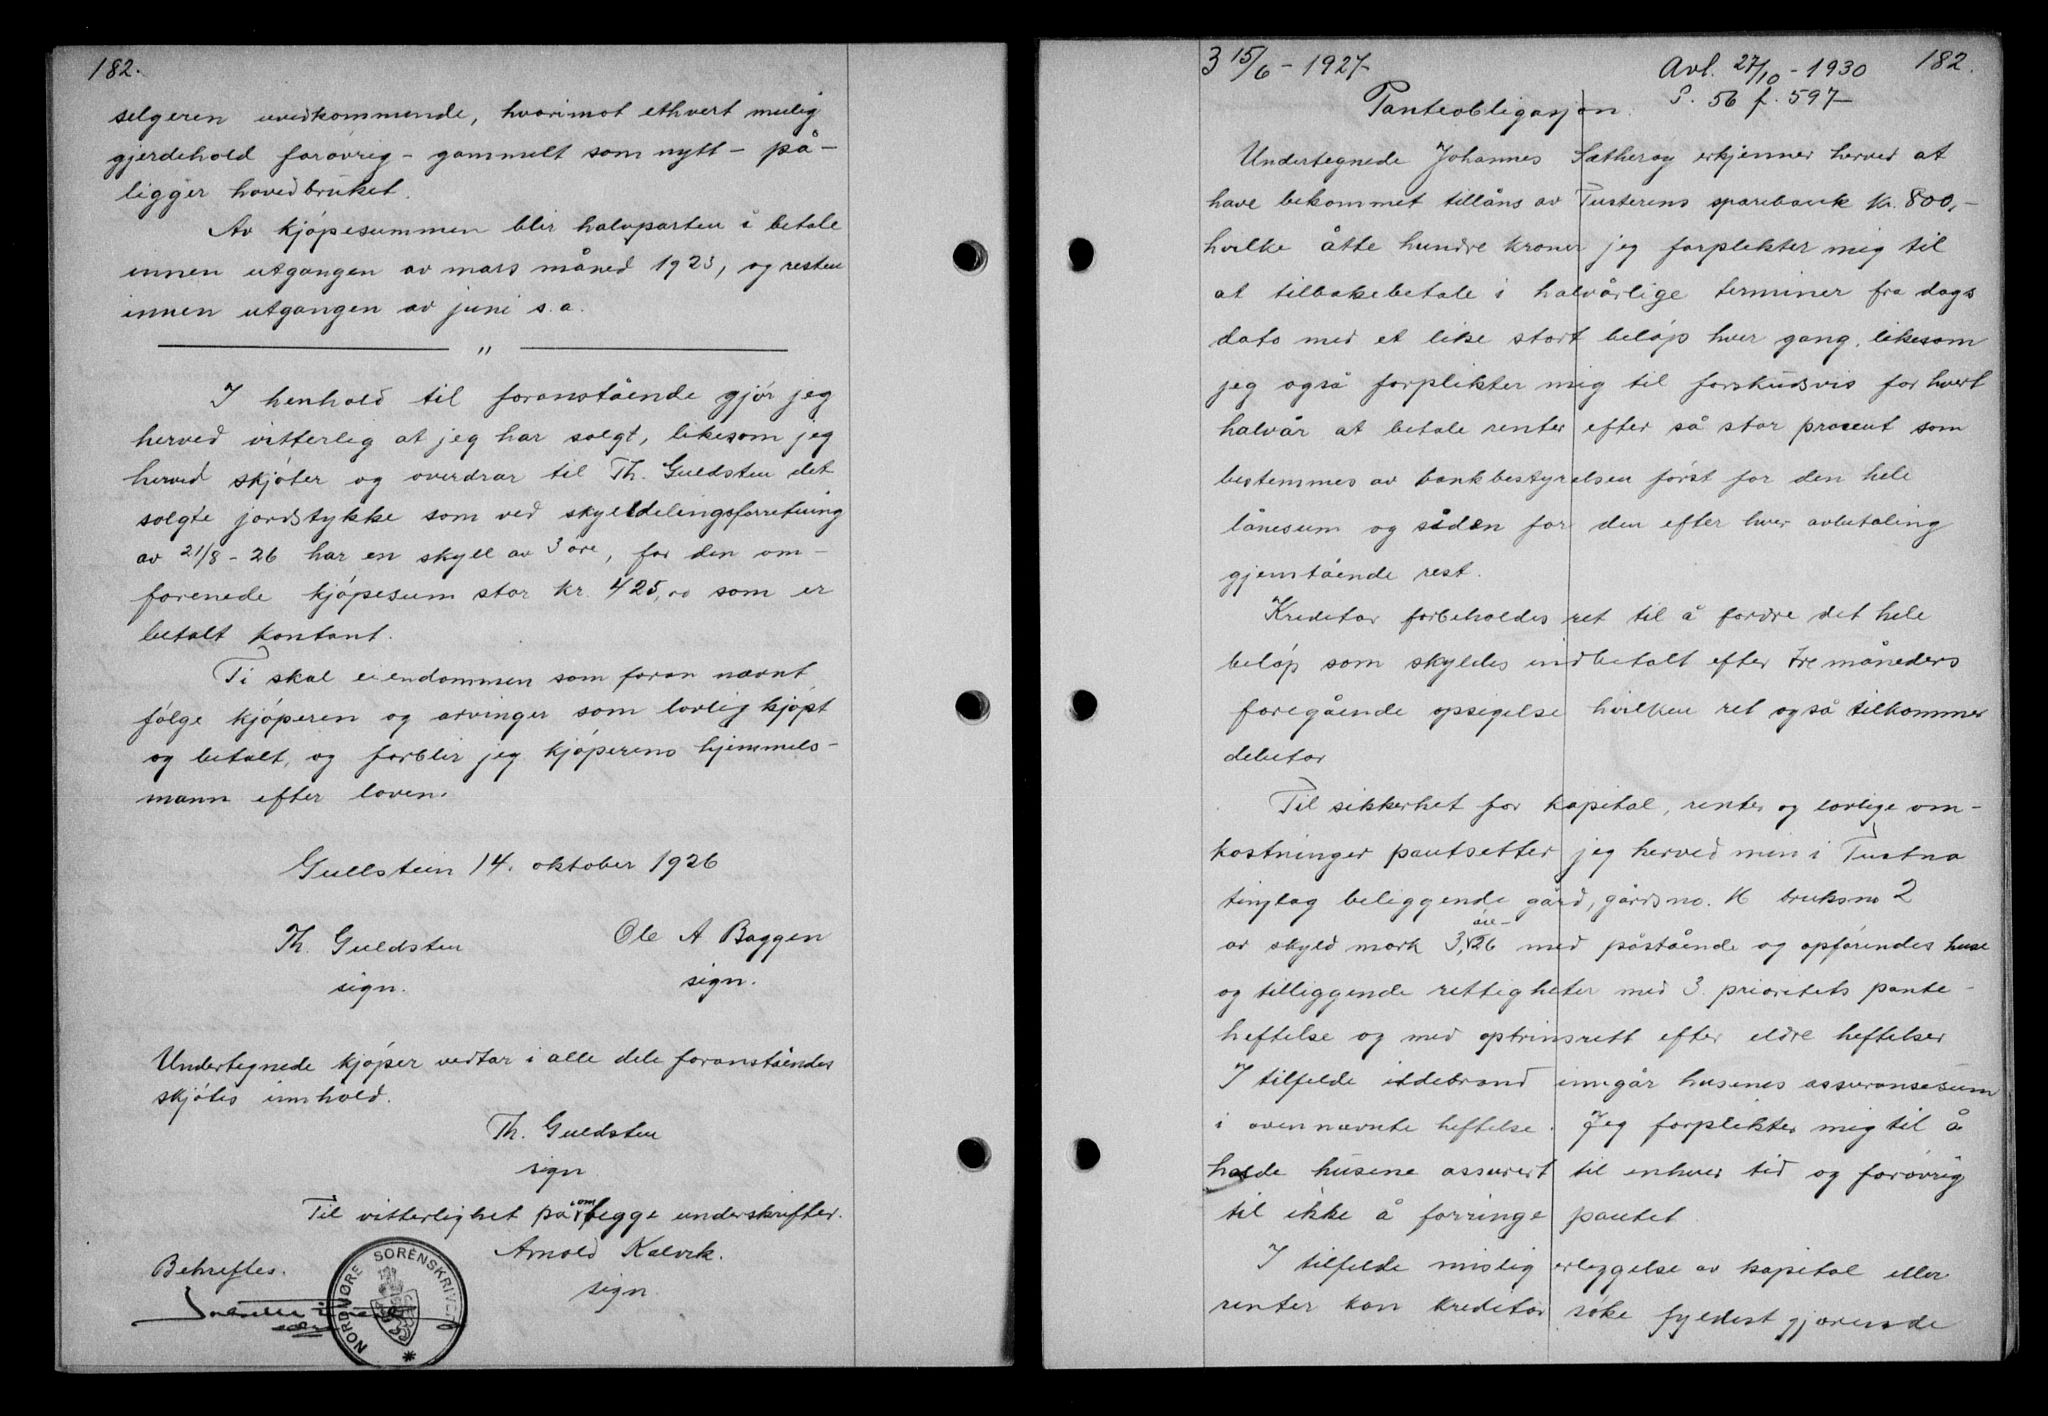 182.
selgeren uvedkommende, hvorimot ethvert mulig
gjerdehold forøvrig - gammelt som nytt - på-
ligger hovedbruket.
Av kjøpesummen blir halvparten å betale
innen utgangen av mars måned 1923, og resten
innen utgangen av juni s.a.
"
I henhold til foranstående gjør jeg
herved vitterlig at jeg har solgt, likesom jeg
herved skjøter og overdrar til Th. Guldsten det
solgte jordstykke som ved skylldelingsforretning
av 21/8 - 26 har en skyll av 3 øre, for den om-
forenede kjøpesum stor kr. 425,00 som er
betalt kontant.
Ti skal eiendommen som foran nævnt
følge kjøperen og arvinger som lovlig kjøpt
og betalt, og forblir jeg kjøperens hjemmels-
mann efter loven.
Gullstein 14. oktober 1926
Th. Guldsten Ole A Baggen
sign. sign.
Undertegnede kjøper vedtar i alle dele foranståendes
skjøtes innhold.
Th. Guldsten
sign
Til vitterlighet på om begge underskrifter.
Arnold Kalvik.
sign.
Behreftes.
NORDMØRE SORENSKRIVERI
3 15/6 - 1927-
Avl. 27/10 - 1930
182.
P. 56 f. 597-
Panteobligasjon.
Undertegnede Johannes Sætherøy erkjenner herved at
have bekommet tillåns av Tusterens sparebank kr. 800,-
hvilke åtte hundre kroner jeg forplikter mig til
at tilbakebetale i halvårlige terminer fra dags
dato med et like stort beløp hver gang, likesom
jeg også forplikter mig til forskudsvis for hvert
halvår at betale renter efter så stor procent som
bestemmes av bankbestyrelsen først for den hele
lånesum og siden for den efter hver avbetaling
gjenstående rest.
Kreditor forbeholdes ret til å fordre det hele
beløp som skyldes indbetalt efter tre måneders
foregående opsigelse hvilken ret også tilkommer
debitor
Til sikkerhet for kapital, renter og lovlige om-
kostninger pantsetter jeg herved min i Tustna
tinglag beliggende gård, gårdsno. 16 bruksno 2
av skyld mark 3,26 med påstående og opførendes huse
og tilliggende rettigheter med 3. prioritets pante-
heftelse og med optrinsrett efter eldre heftelser
I tilfelde ildebrand inngår husenes assuransesum
i ovennævnte heftelse. Jeg forplikter mig til å
holde husene assurert til enhver tid og forøvrig
til ikke å forringe pantet.
I tilfelde mislig erleggelse av kapital eller
renter kan kreditor søke fyldestgjørende